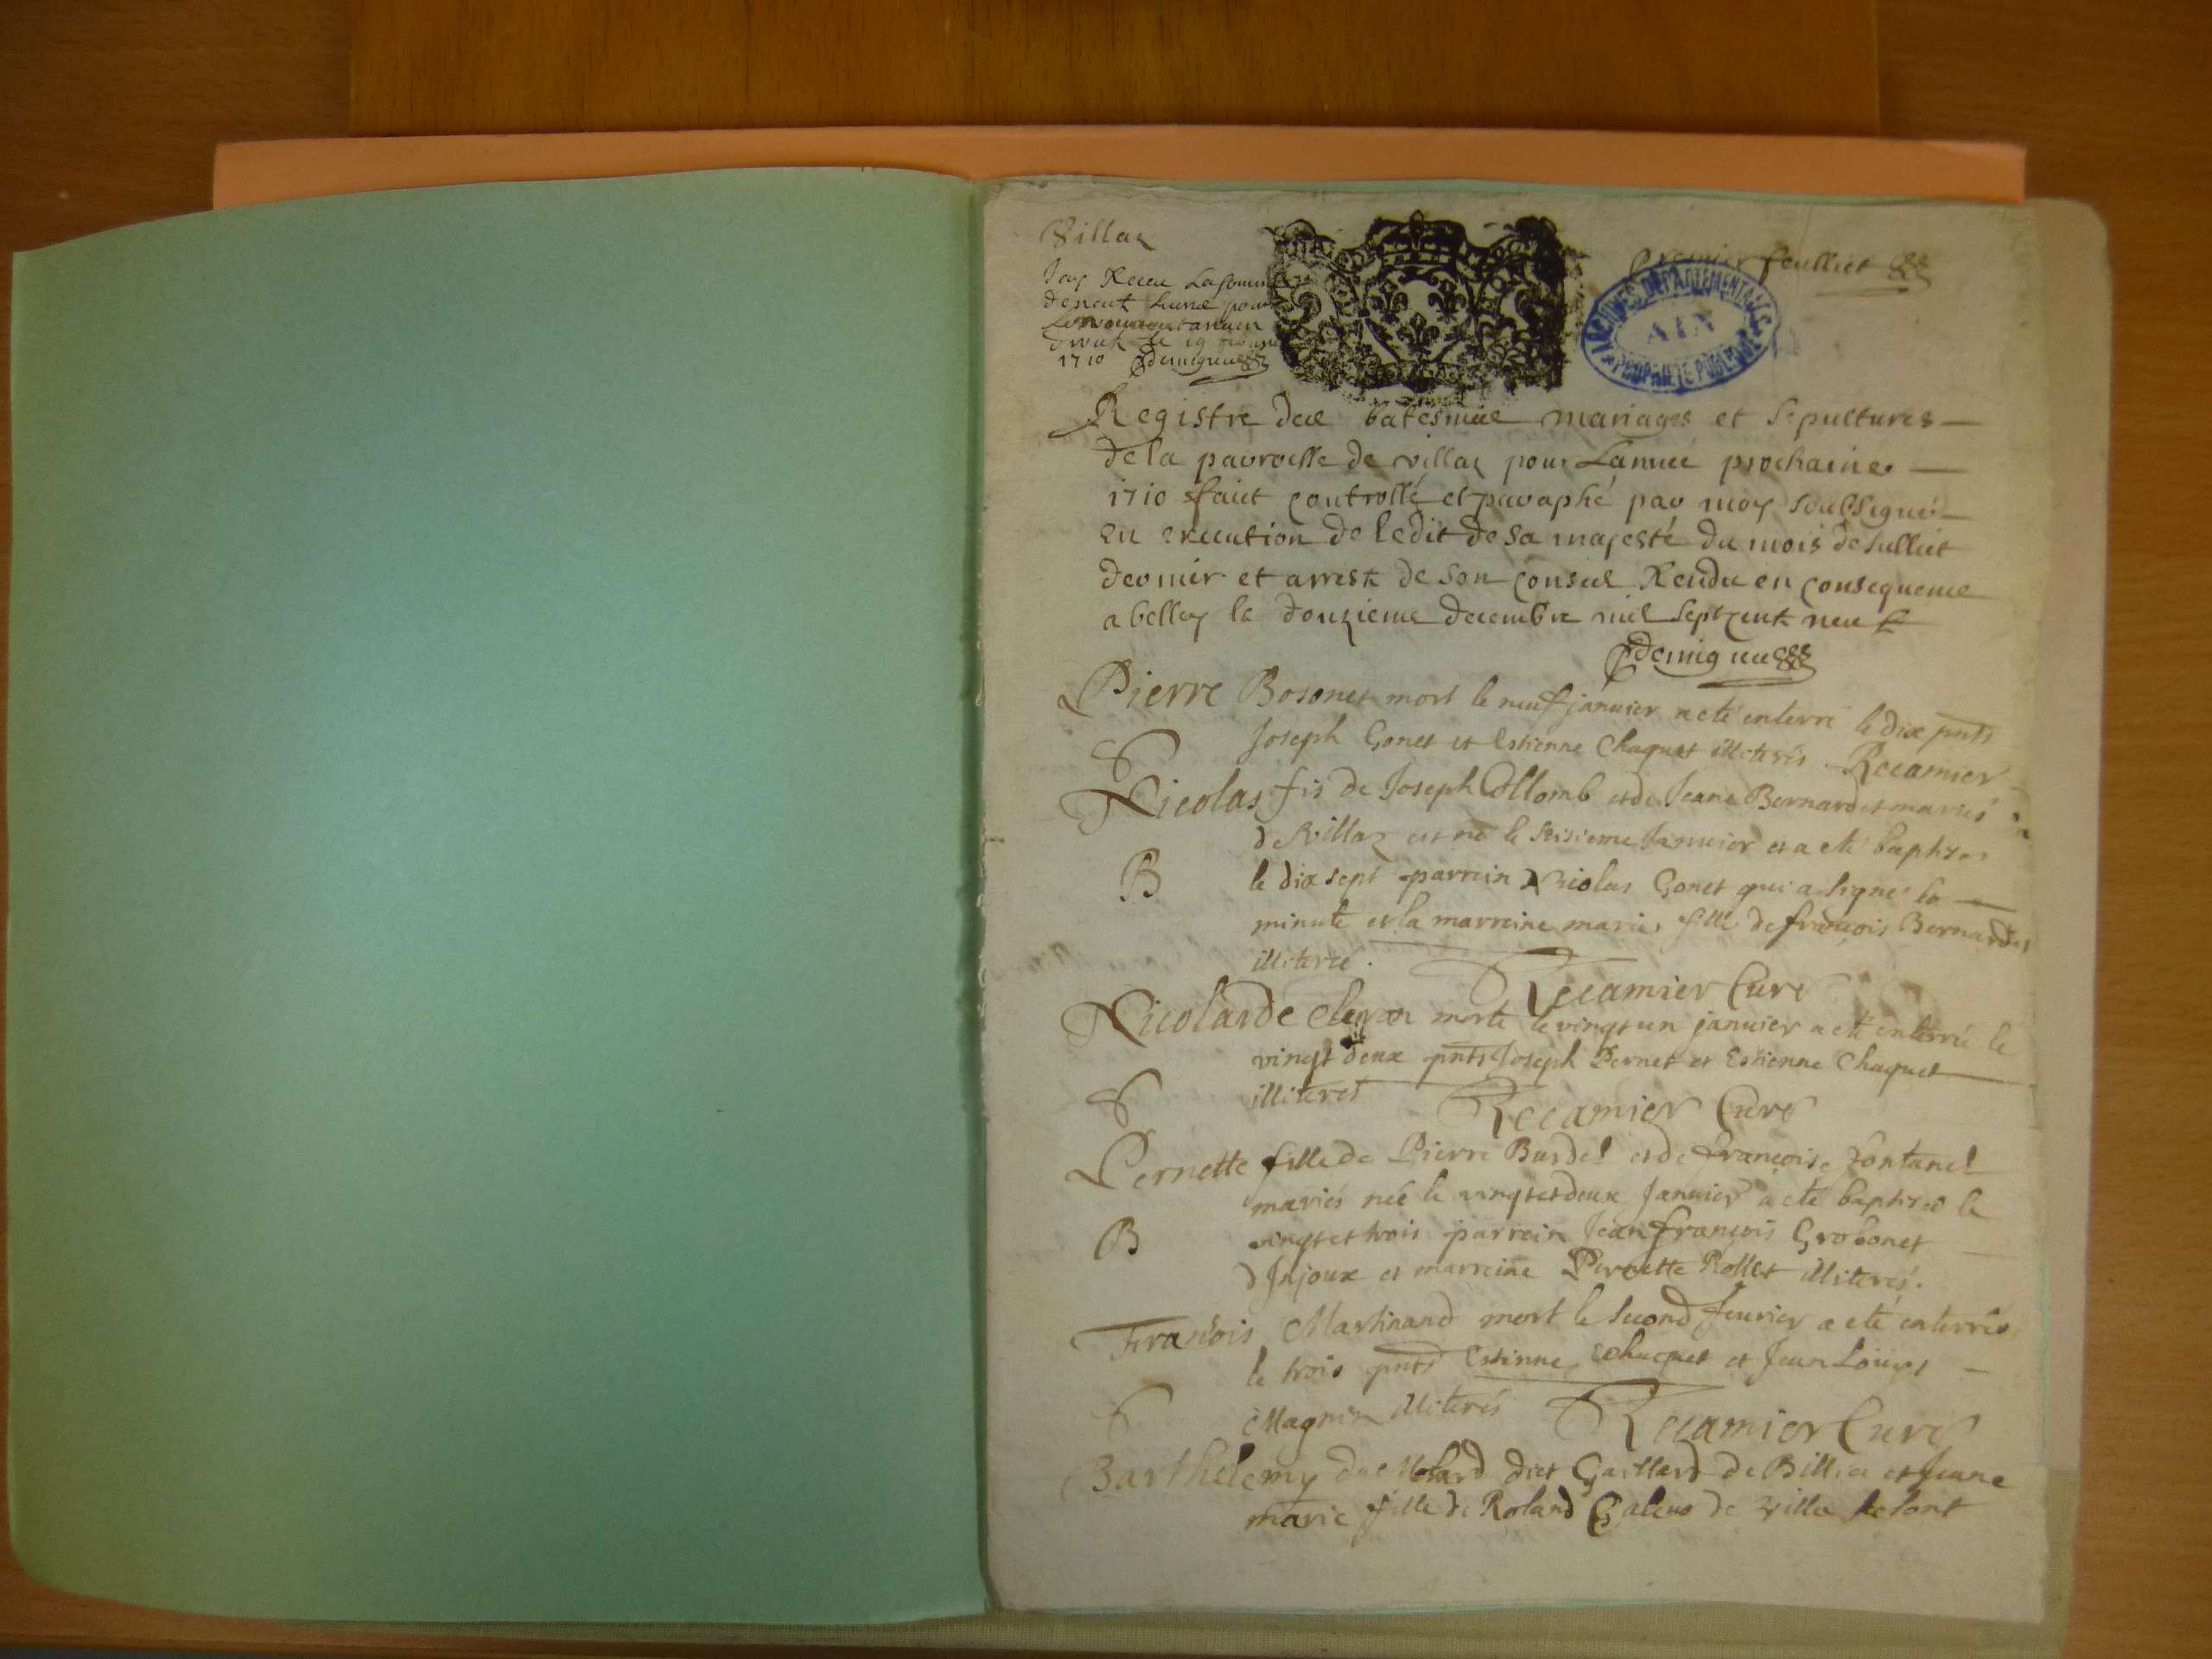 Villaz
premier feulliet
Jay Receu La somme
de neuf livres pour
1710 Demigneux
ARCHIVES DEPARTEMENTALES
AIN
PROPRIETE PUBLIQUE
Registre des batesmes mariages et sepultures
de la parroisse de villaz pour Lannée prochaine
1710 faict controllé et paraphé par moy soubsigné
en execution de ledit de sa majesté du mois de Julliet
dernier et arrest de son conseil Rendu en consequence
a belley le douzieme decembre mil sept cent neuf
Demigneux
Pierre Bosonet mort le neuf januier a eté enterré le dix pnts
Joseph Gonet et Estienne Chaquet illiterés Recamier
S
Nicolas fis de Joseph Collomb et de Jeane Bernardet mariés
de Villaz est né le seisieme Januier et a eté baptisé
B
le dix sept parrein Nicolas Gonet qui a signé la
minute et la marreine marie fille de françois Bernardet
illiteré.
Recamier Curé
Nicolarde morte le vingt un januier a eté enterrée le
vingt deux pnts Joseph Pernet et Estienne Chaquet
S
illiterés
Recamier Curé
Pernette fille de Pierre Burdet et de françoise fontanel
mariés née le vingt et deux Januier a eté baptisée le
B
vingt et trois parrein Jean françois Grobonet
d Injoux et marreine Pernette Rollet illiterés.
François Martinand mort le second feurier a eté enterré
le trois pnts Estienne Chaquet et Jean Louis
S
Magnin illiterés
Recamier Curé
Barthelemy de Molard dict Gaillard de Billia et Jeane
marie fille de Roland de Villa se sont